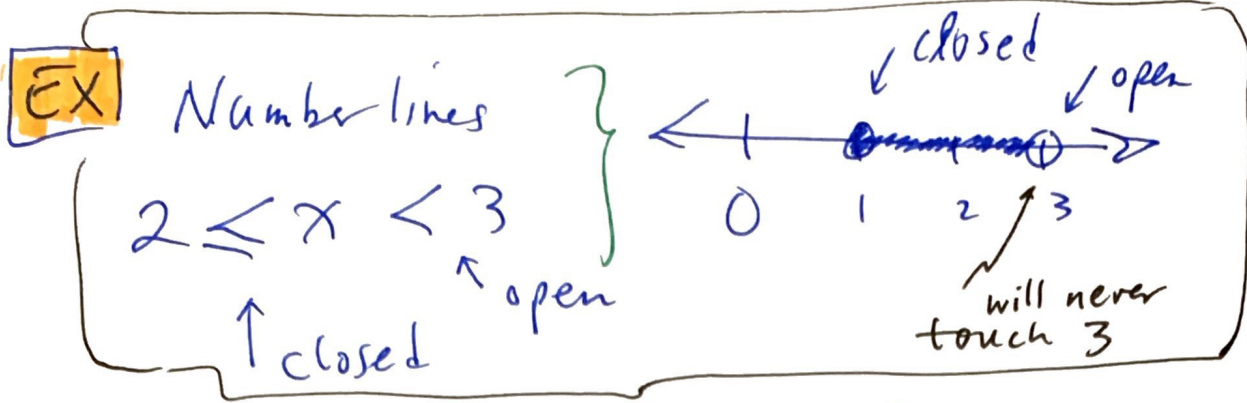 EX
Number lines
2 ≤ x < 3
closed
open
closed
open
0 1 2 3
will never
touch 3